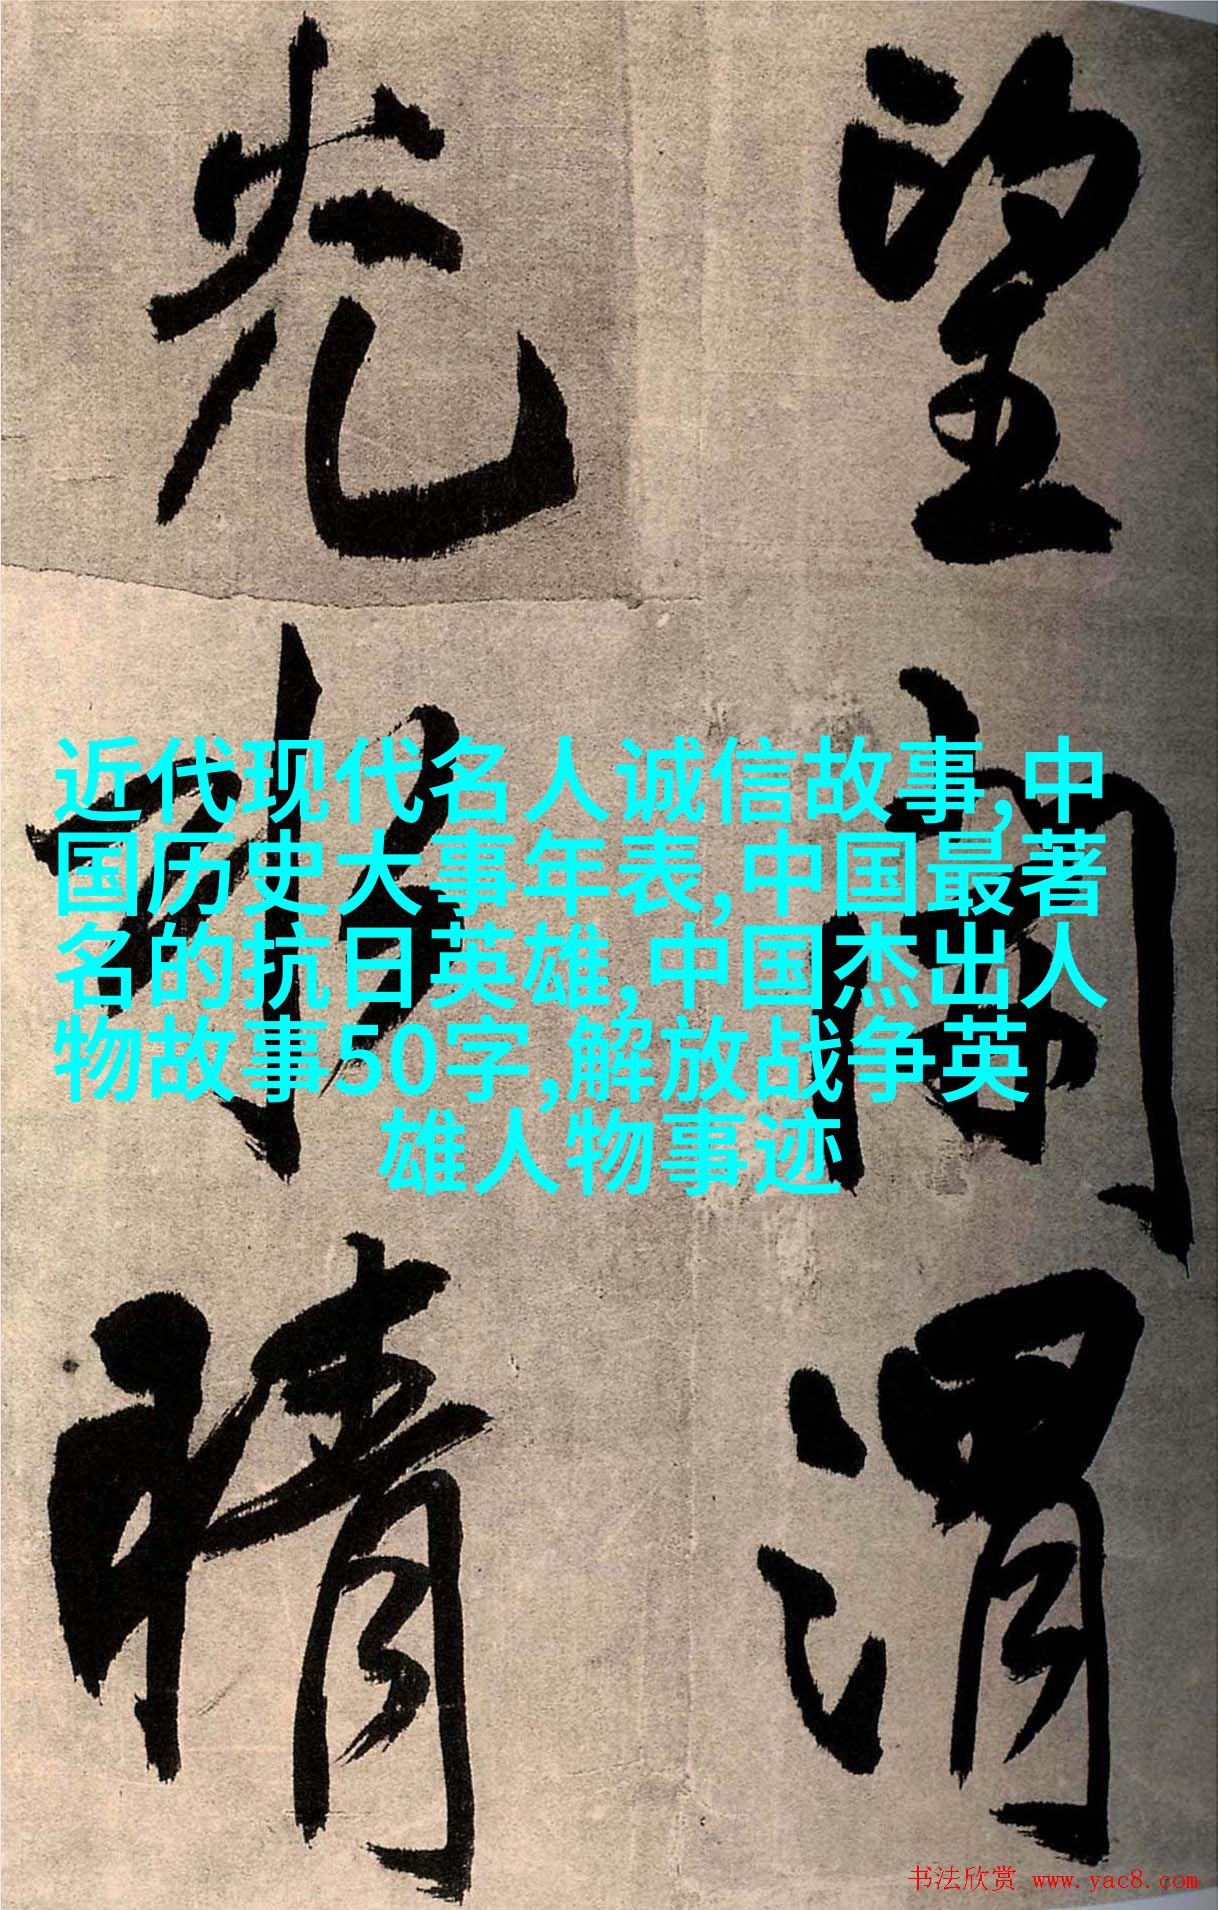 近代现代名人诚信故事,中
国历史大事年表,中国最著
名的抗日英雄,中国杰出人
物故事50字,解放战争英
雄人物事迹
望闌渭
光水晴
书法欣赏 www.yac8.com